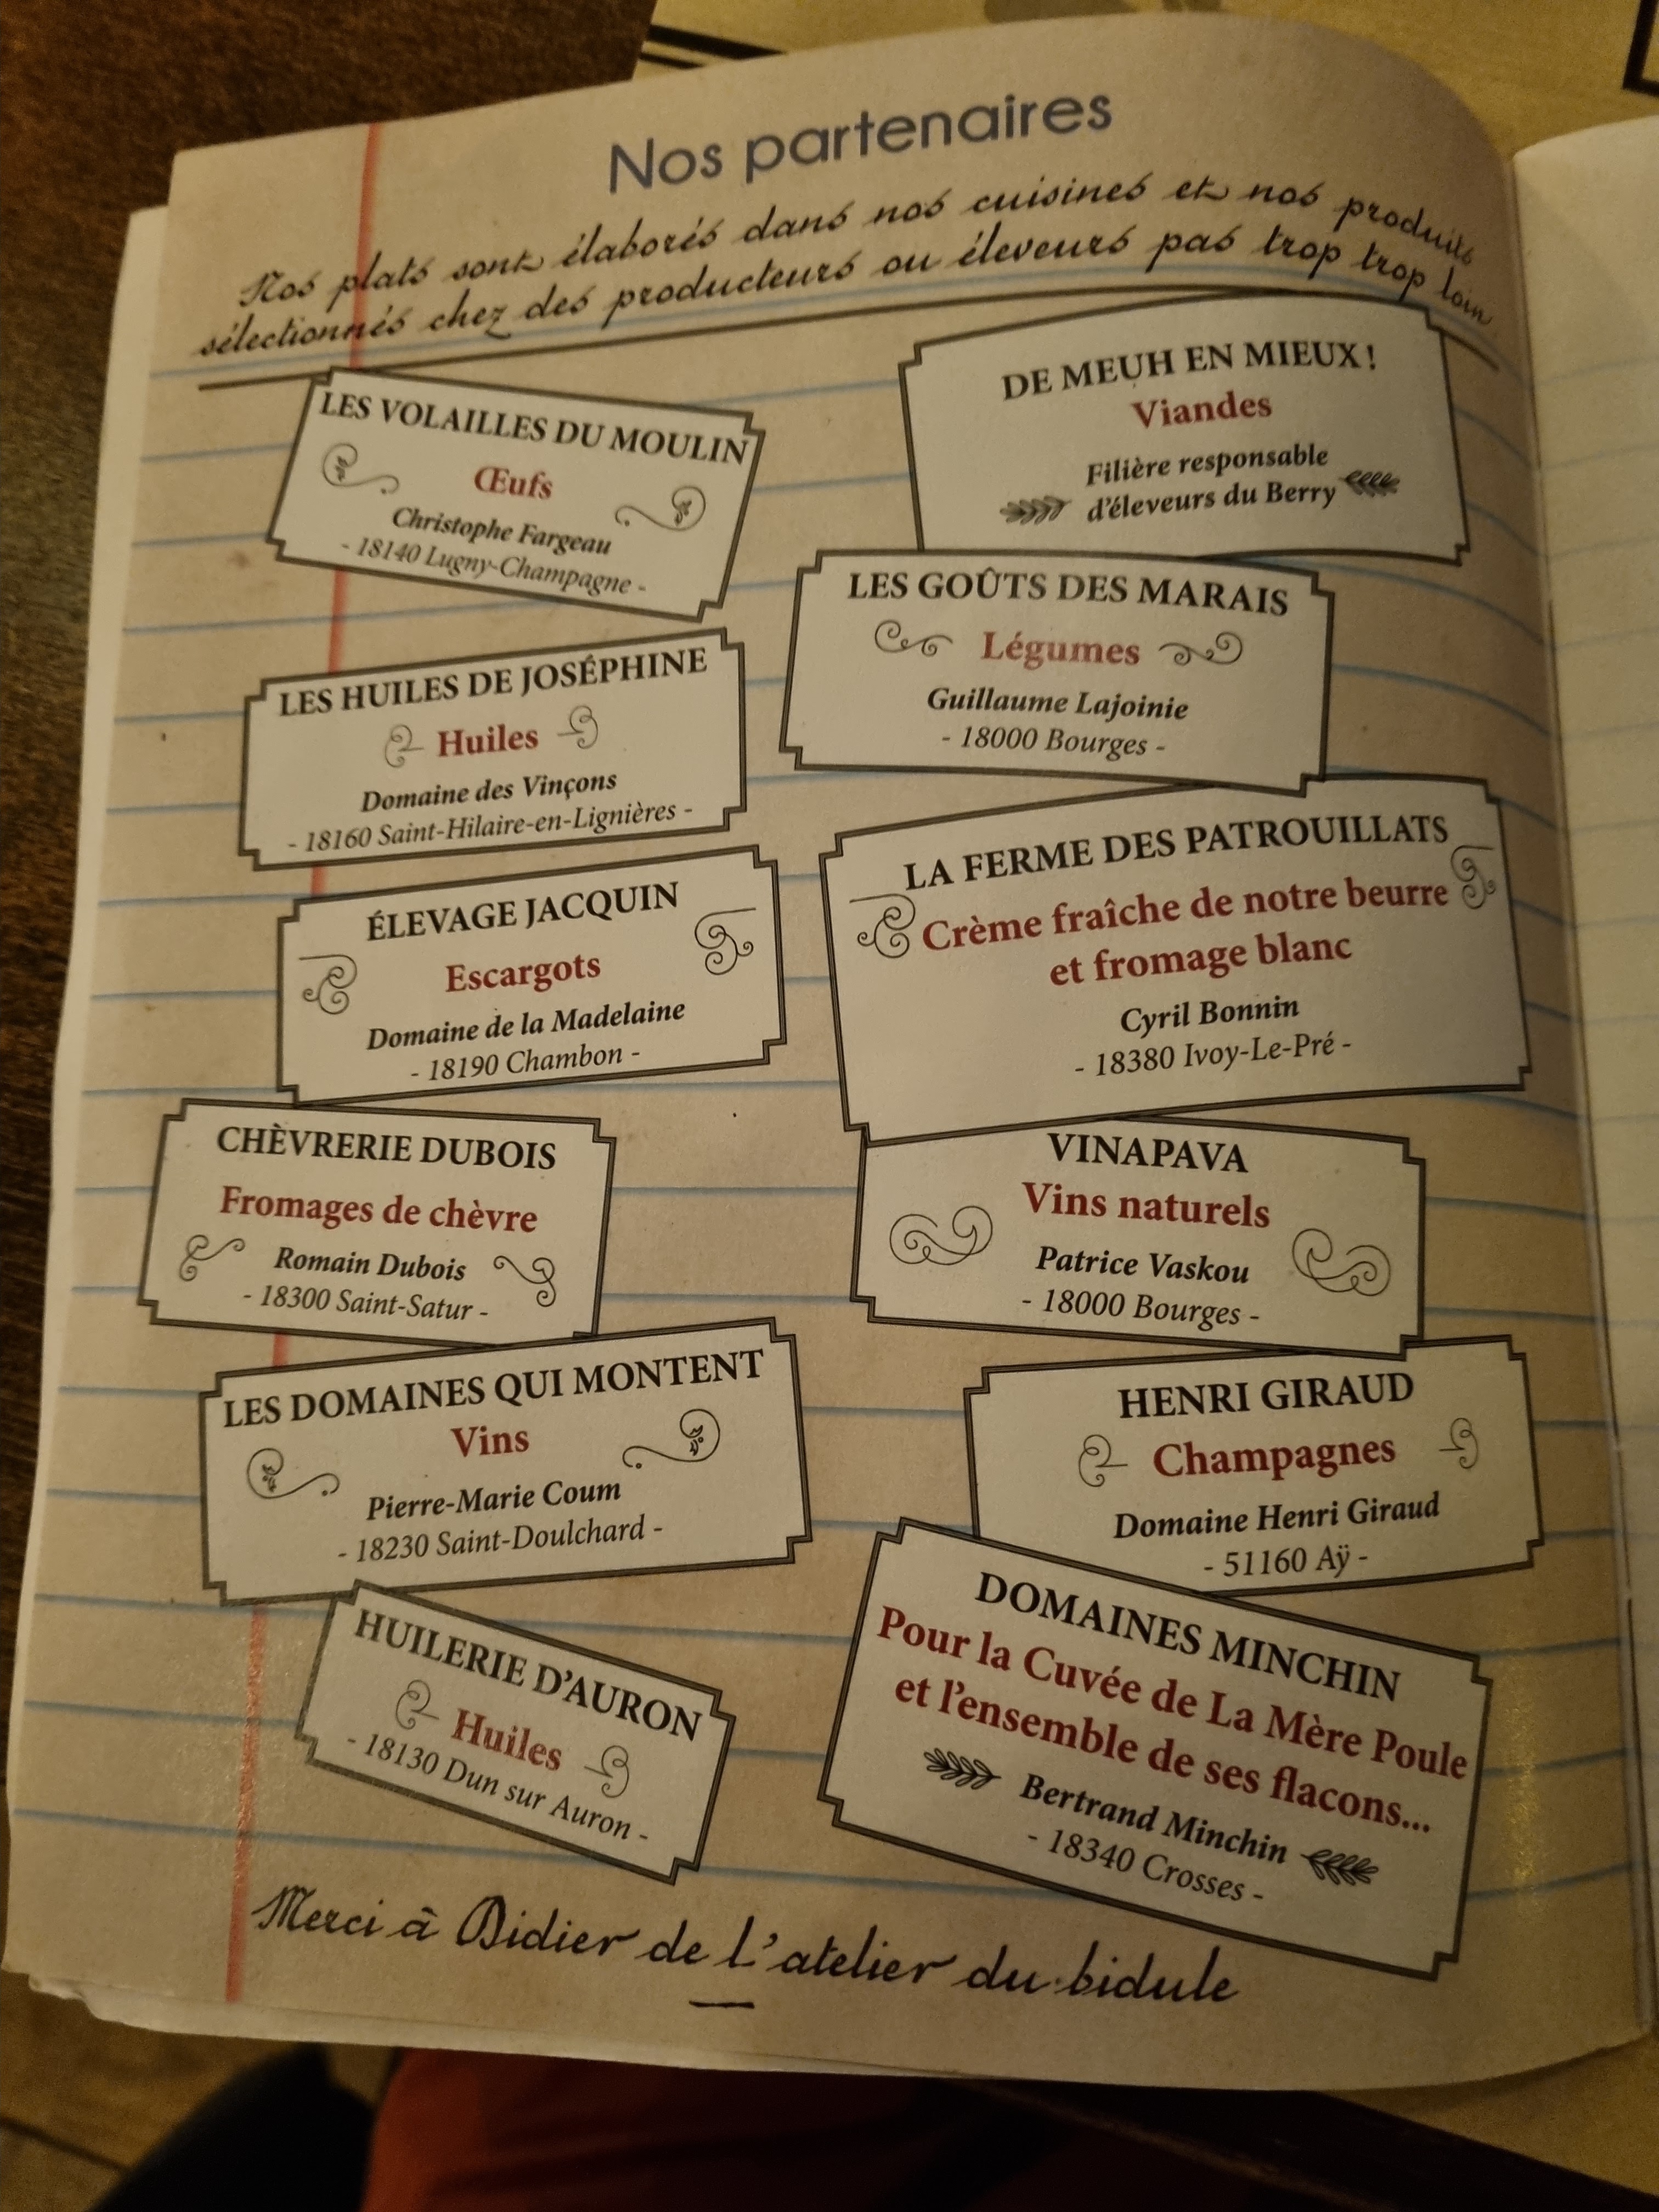 Nos partenaires
Nos plats sont élaborés dans nos cuisines et nos produits
sélectionnés chez des producteurs ou éleveurs pas trop trop loin
LES VOLAILLES DU MOULIN
Œufs
Christophe Fargeau
- 18140 Lugny-Champagne -
DE MEUH EN MIEUX !
Viandes
Filière responsable
d'éleveurs du Berry
LES HUILES DE JOSÉPHINE
Huiles
Domaine des Vinçons
- 18160 Saint-Hilaire-en-Lignières -
LES GOÛTS DES MARAIS
Légumes
Guillaume Lajoinie
- 18000 Bourges -
ÉLEVAGE JACQUIN
Escargots
Domaine de la Madelaine
- 18190 Chambon -
LA FERME DES PATROUILLATS
Crème fraîche de notre beurre
et fromage blanc
Cyril Bonnin
- 18380 Ivoy-Le-Pré -
CHÈVRERIE DUBOIS
Fromages de chèvre
Romain Dubois
- 18300 Saint-Satur -
VINAPAVA
Vins naturels
Patrice Vaskou
- 18000 Bourges -
LES DOMAINES QUI MONTENT
Vins
Pierre-Marie Coum
- 18230 Saint-Doulchard -
HENRI GIRAUD
Champagnes
Domaine Henri Giraud
- 51160 Aÿ -
HUILERIE D'AURON
Huiles
- 18130 Dun sur Auron -
DOMAINES MINCHIN
Pour la Cuvée de La Mère Poule
et l'ensemble de ses flacons...
Bertrand Minchin
- 18340 Crosses -
Merci à Didier de l'atelier du bidule